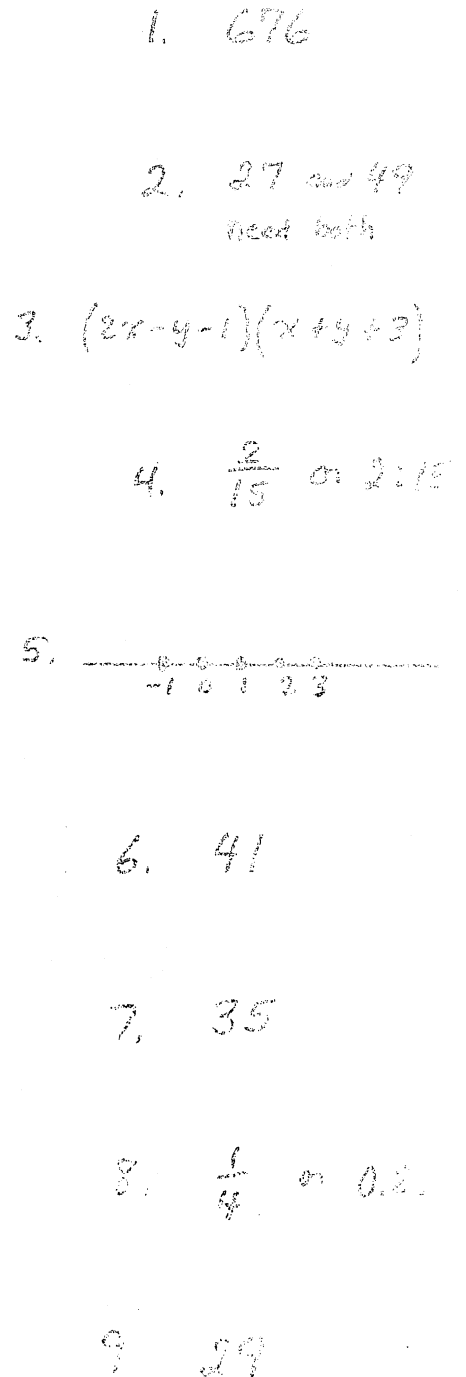 1. 676
2. 27 and 49
need both
3. (2x-y-1)(x+y+3)
4. 2/15 or 2:15
5.
-1 0 1 2 3
6. 41
7. 35
8. 1/4 or 0.2
9 29